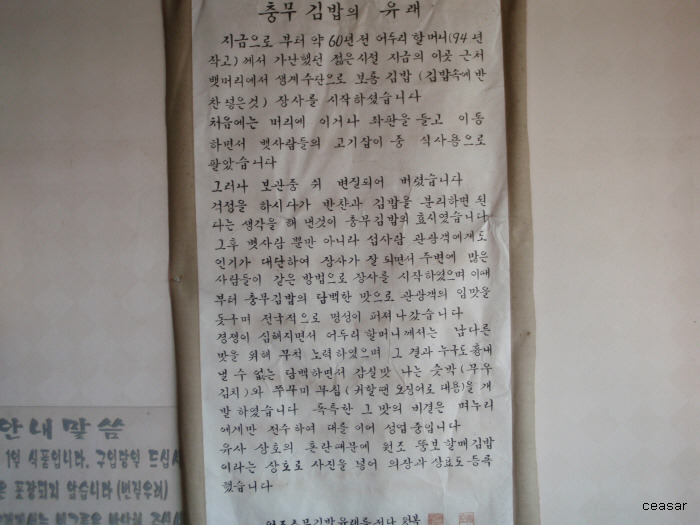 충무 김밥의 유래
지금으로 부터 약 60년전 어두리 할머니(94년
작고)께서 가난했던 젊은시절 지금의 이곳 근처
뱃머리에서 생계수단으로 보통 김밥 (김밥속에 반
찬 넣은것) 장사를 시작하셨습니다
처음에는 머리에 이거나 좌판을 들고 이동
하면서 뱃사람들의 고기잡이 중 식사용으로
팔았습니다
그러나 보관중 쉬 변질되어 버렸습니다
걱정을 하시다가 반찬과 김밥을 분리하면 된
다는 생각을 해 낸것이 충무김밥의 효시였습니다
그후 뱃사람 뿐만 아니라 섬사람 관광객에게도
인기가 대단하여 장사가 잘 되면서 주변에 많은
사람들이 같은 방법으로 장사를 시작하였으며 이때
부터 충무김밥의 담백한 맛으로 관광객의 입맛을
돋구며 전국적으로 명성이 퍼져나갔습니다
경쟁이 심해지면서 어두리할머니께서는 남다른
맛을 위해 무척 노력하였으며 그 결과 누구도 흉내
낼 수 없는 담백하면서 감실맛 나는 슷박(무우
김치)와 쭈꾸미 무침 (귀할땐 오징어로 대용)을 개
발 하였습니다 독특한 그 맛의 비결은 며누리
에게만 전수하여 대를 이어 성업중입니다
유사 상호의 혼란때문에 원조 뚱보할매김밥
이라는 상호로 사진을 넣어 의장과 상표도 등록
했습니다
원조충무김밥유래를 적다
안내말씀
1일 식품입니다. 구입당일 드십시
은 포장되지 않습니다 (변질우려)
ceasar